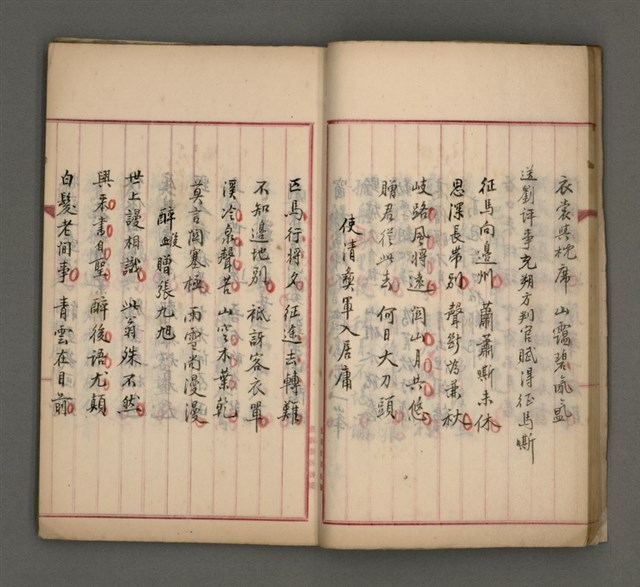 衣裳與枕席 山靄碧氛氳
送劉評事充朔方判官賦得征馬嘶
征馬向邊州 蕭蕭嘶未休
思深長帶別 聲斷為兼秋
岐路風將遠 關山月共愁
贈君從此去 何日大刀頭
使清夷軍入居庸
匹馬行將久 征途去轉難
不知邊地別 祗訝客衣單
溪冷泉聲苦 山空木葉乾
莫言關塞極 雨雪尚漫漫
醉後贈張九旭
世上謾相識 此翁殊不然
興來書自聖 醉後語尤顛
白髮老閒事 青雲在目前